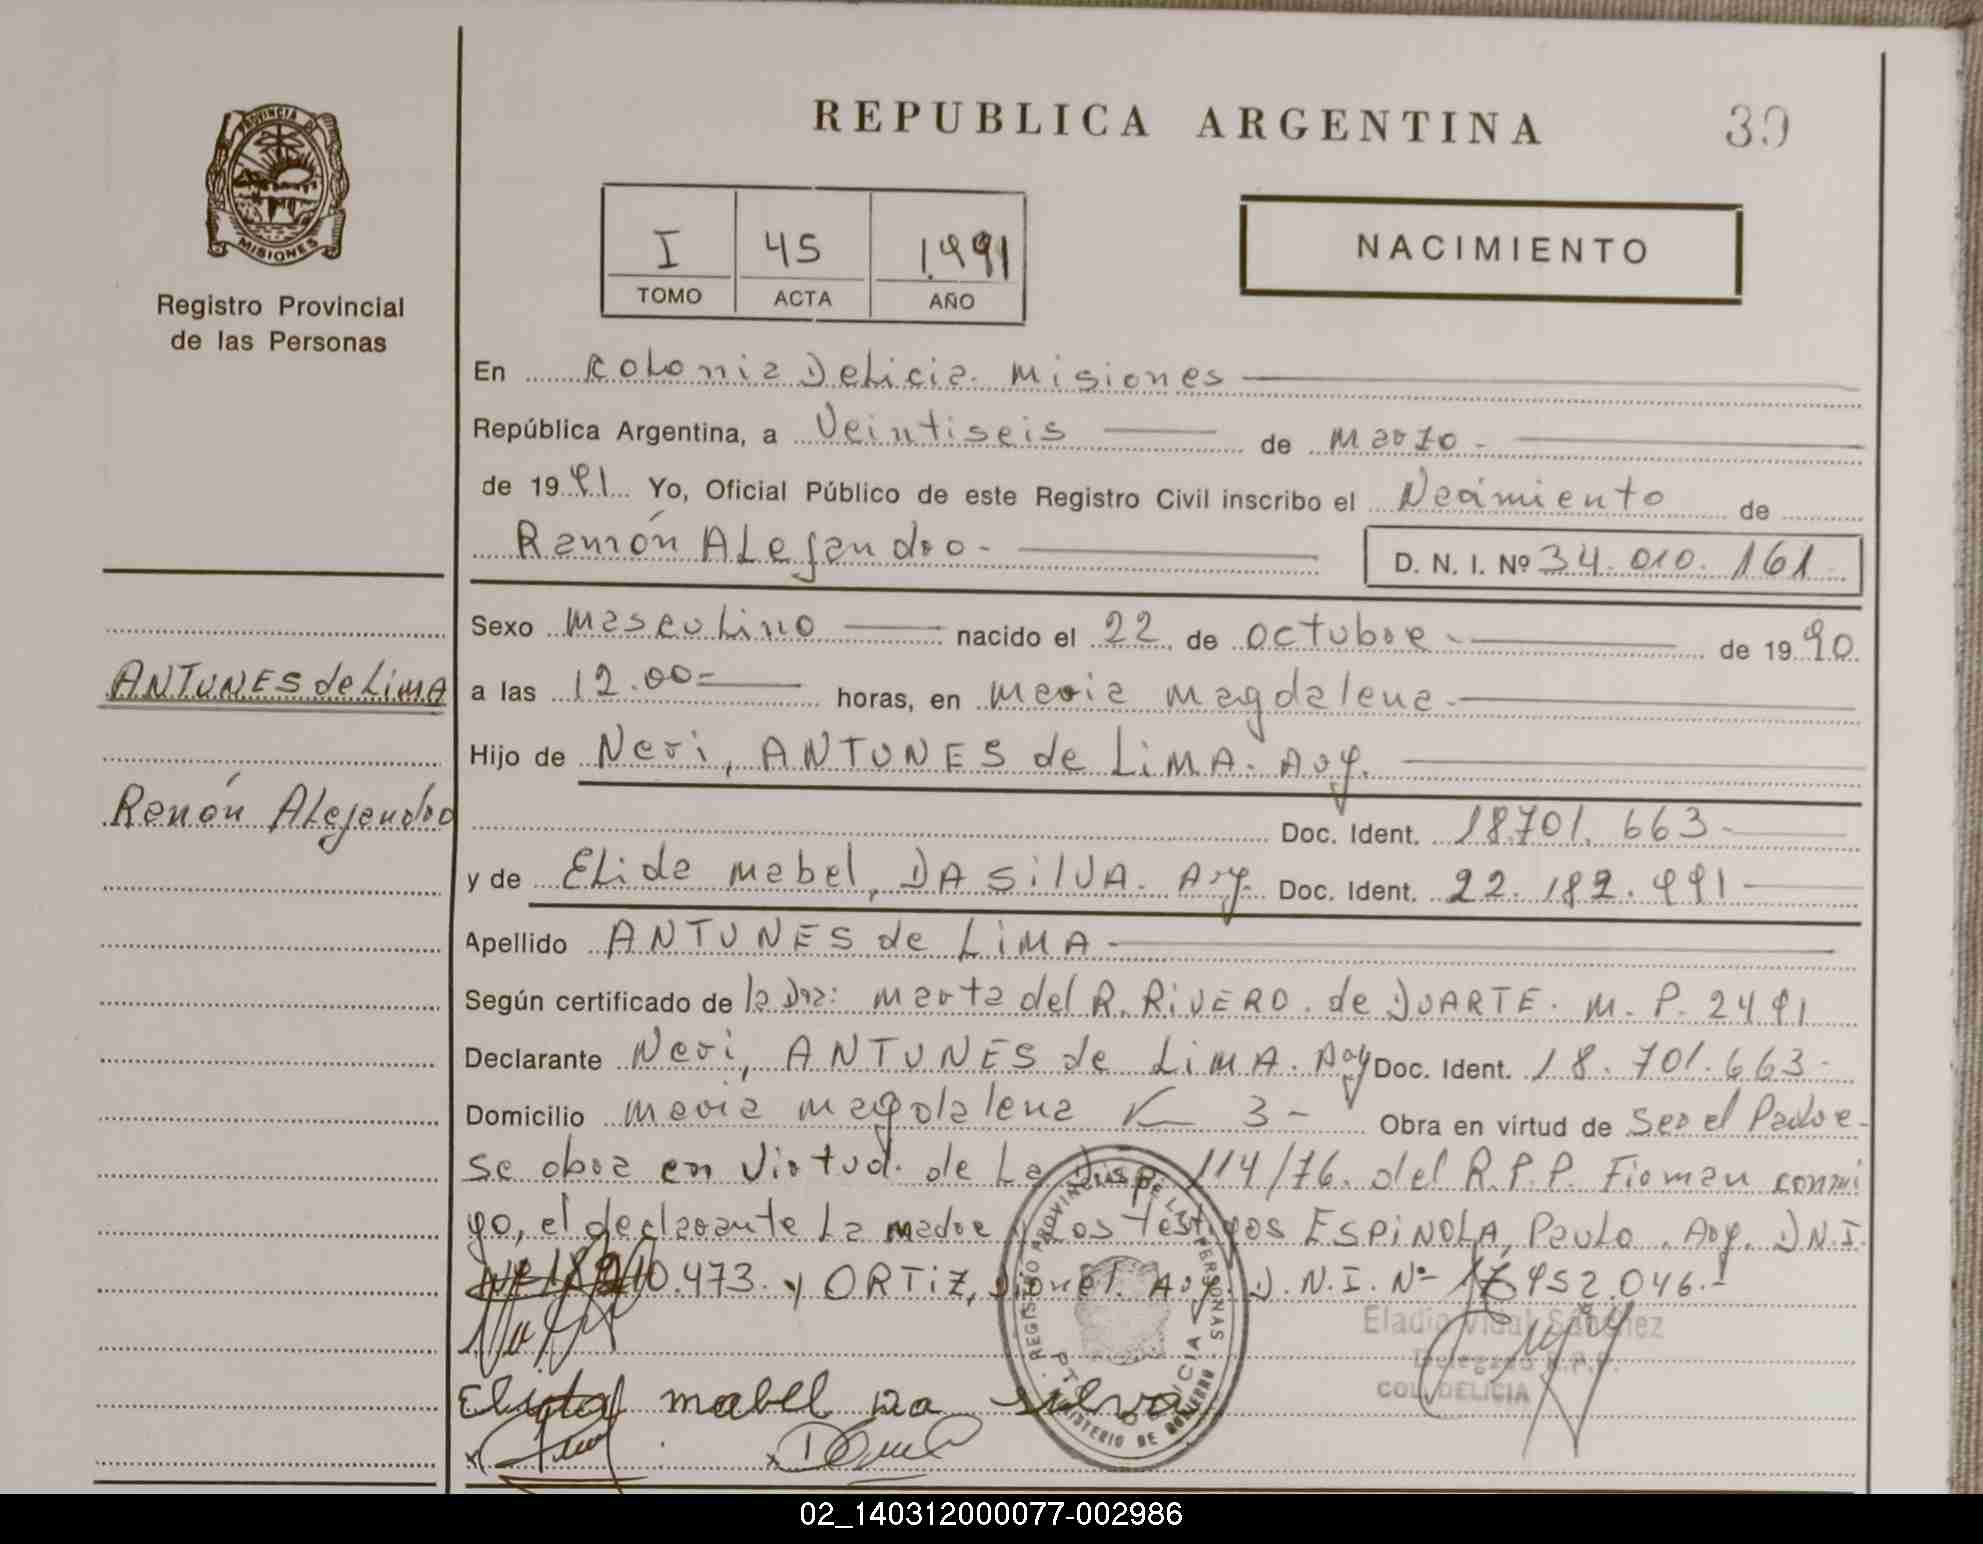 REPUBLICA ARGENTINA
39
PROVINCIA DE
MISIONES
Registro Provincial
de las Personas
I 45 1.991
TOMO ACTA AÑO
NACIMIENTO
En Colonia Delicia. Misiones
República Argentina, a Veintiseis de Marzo.
de 1991 Yo, Oficial Público de este Registro Civil inscribo el Nacimiento de
Ramón Alejandro- D. N. I. Nº 34.010.161
Sexo Masculino nacido el 22 de Octubre. de 1990
ANTUNES de LiMA
a las 12.00= horas, en Maria Magdalena.
Hijo de Neri, ANTUNES de LiMA. Arg.
Ramón Alejandro
Doc. Ident. 18.701.663-
y de Elida Mabel, DA SilVA. Arg. Doc. Ident. 22.182.991
Apellido ANTUNES de LiMA
Según certificado de la Dra: Marta del R. RiVERO. de DUARTE. M. P. 2491
Declarante Neri, ANTUNES de LiMA. Arg Doc. Ident. 18.701.663-
Domicilio Maria Magdalena K 3- Obra en virtud de Ser el Padre-
se obra en Virtud. de La Disp. 114/76. del R.P.P. Firman conmi
go, el declarante La madre y Los Testigos ESPiNOLA, Paulo. Arg. D.N.I.
10.473. y ORTiZ, Arg. D.N.I. Nº 952.046.-
Eladio Vidal Sánchez
Delegado R.P.P.
COL. DELICIA
Elida mabel Da Silva
REGISTRO PROVINCIAL DE LAS PERSONAS
PTO. DELICIA
MINISTERIO DE GOBIERNO
02_140312000077-002986